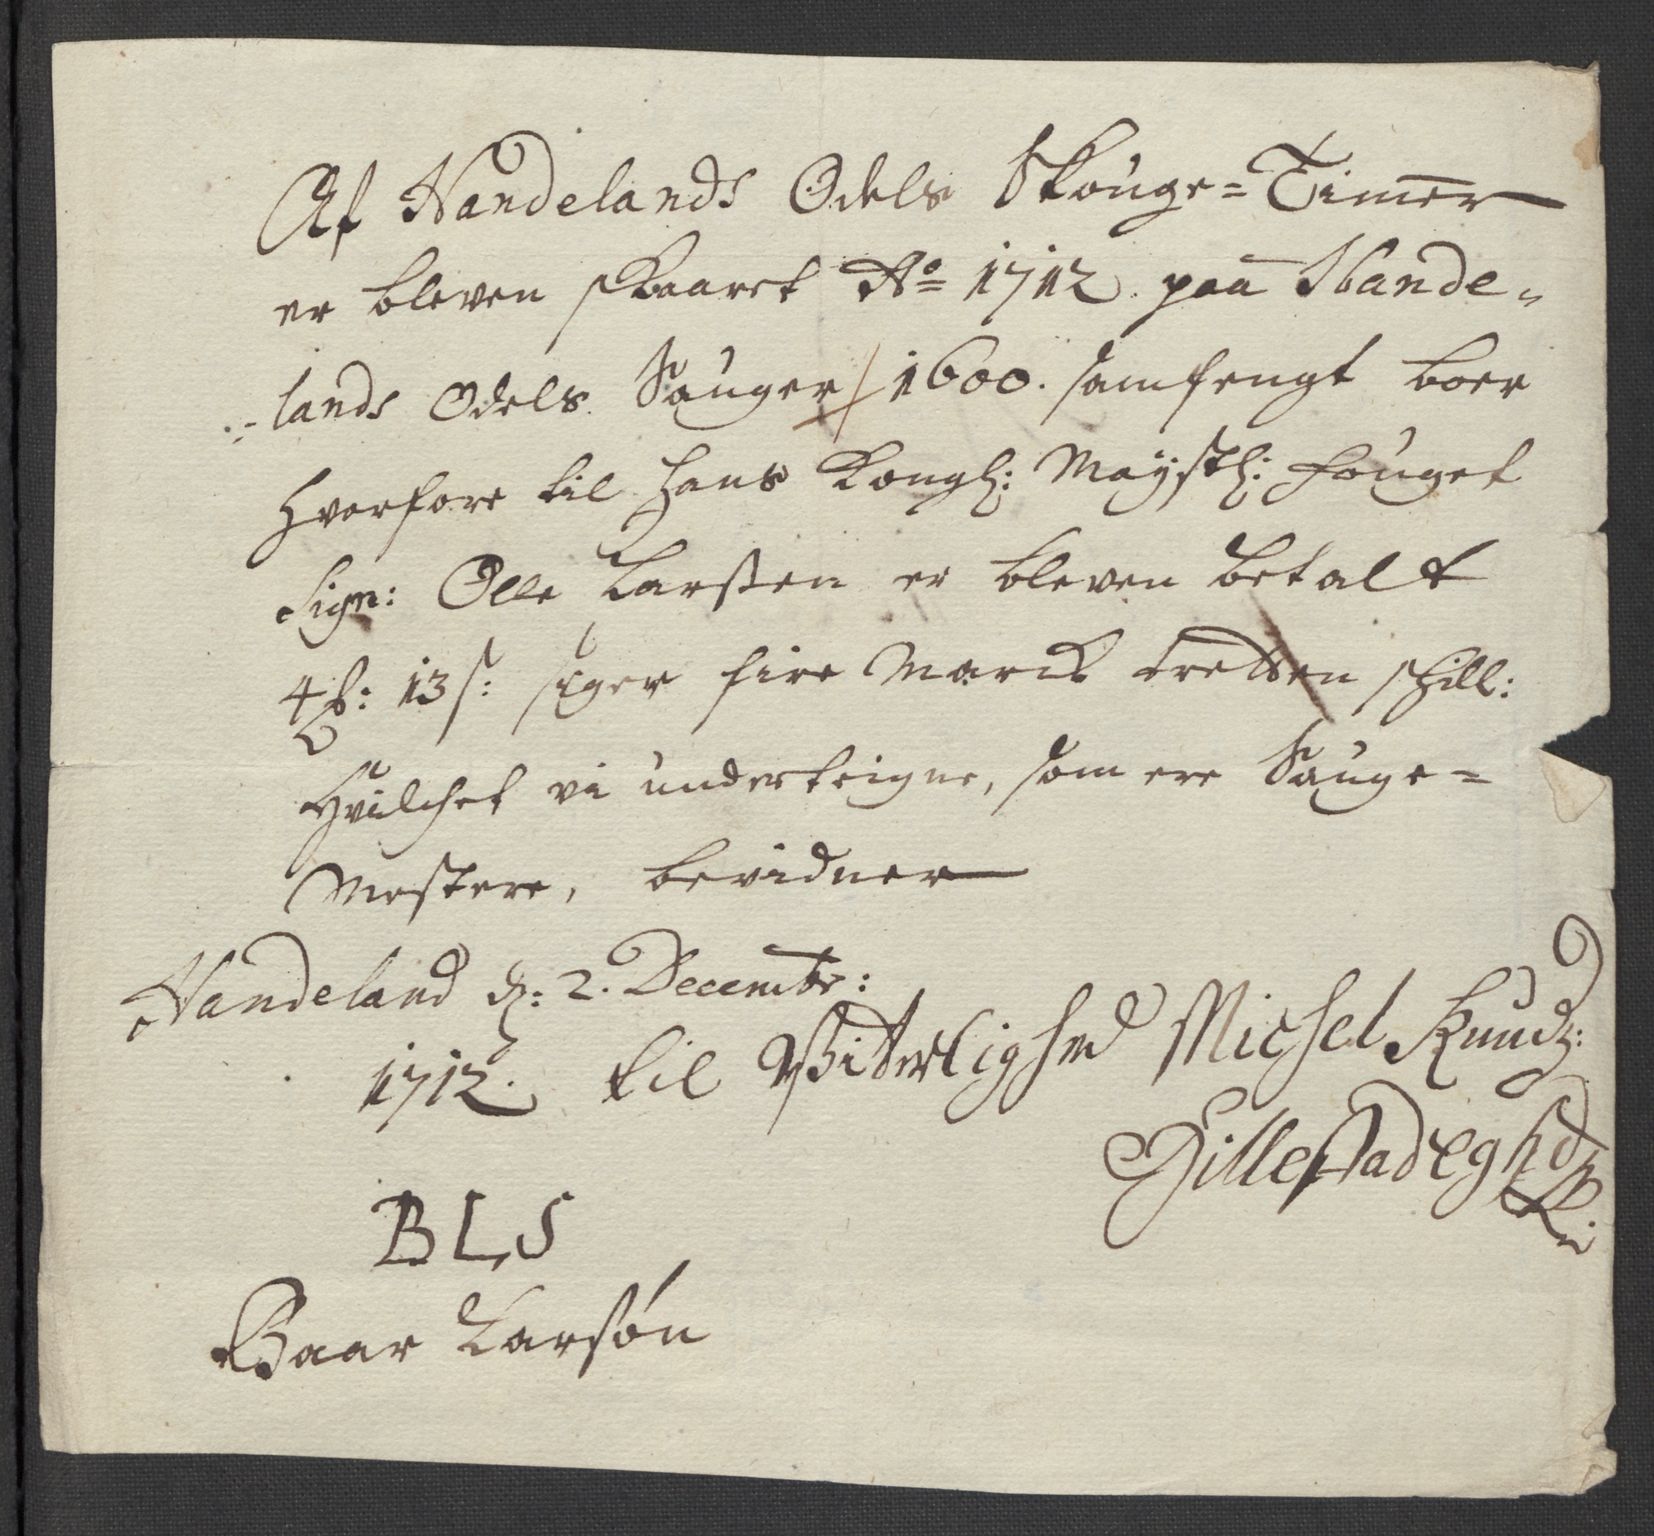 Af Handelands Odels Skouge=Timer
er bleven skaaret Ao 1712. paa Hande-
lands Odels Sauger 1600. samfengt boer
hvorfore til Hans Kongl: Mayst: Fouget
Sign: Olle Larssen er bleven betalt
4 ß: 13 s: siger fire Marck tretten schill:
Hvilchet vi underteigne, som ere Sauge=
Mestere, bevidner
Handeland d: 2. Decembr:
1712. til Witterlighed Michel Knudz:
BLS
Baar Larsøn